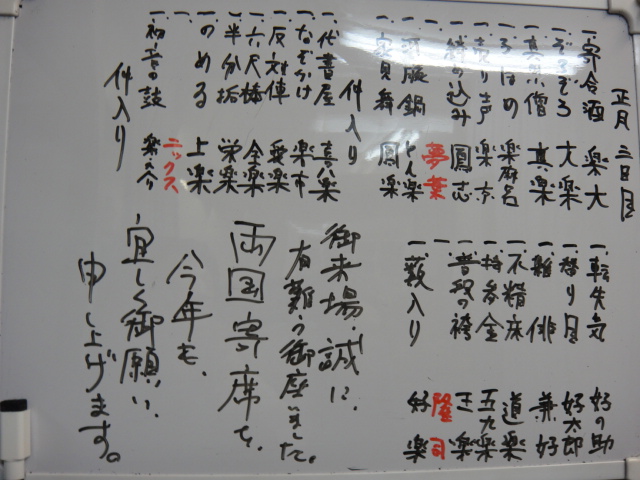 正月三日目
一、寄合酒 楽大
一、ぞろぞろ 大楽
一、真田小僧 真楽
一、ろはの 楽麻呂
一、売り声 楽京
一、締め込み 鳳志
夢葉
一、河豚鍋 とん楽
一、家見舞 鳳楽
仲入り
一、代書屋 喜八楽
一、なぞかけ 楽市
一、反対俥 愛楽
一、六尺棒 全楽
一、半分垢 栄楽
一、のめる 上楽
一、ニックス
一、初音の鼓 楽之介
仲入り
一、転失気 好の助
一、悋り目 好太郎
一、雛俳 兼好
一、不精床 道楽
一、持参金 五九楽
一、普段の袴 王楽
一、 隆司
一、藪入り 好楽
御来場、誠に、
有難う御座いました。
両国寄席を、
今年も、
宜しく御願い、
申し上げます。